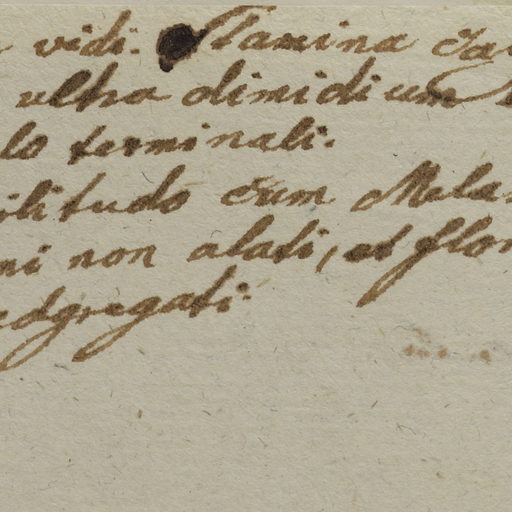 vidi. Stamina
ultra dimidium
lo terminali.
ilitudo cum Mela
ni non alati, et flor
adgregati.